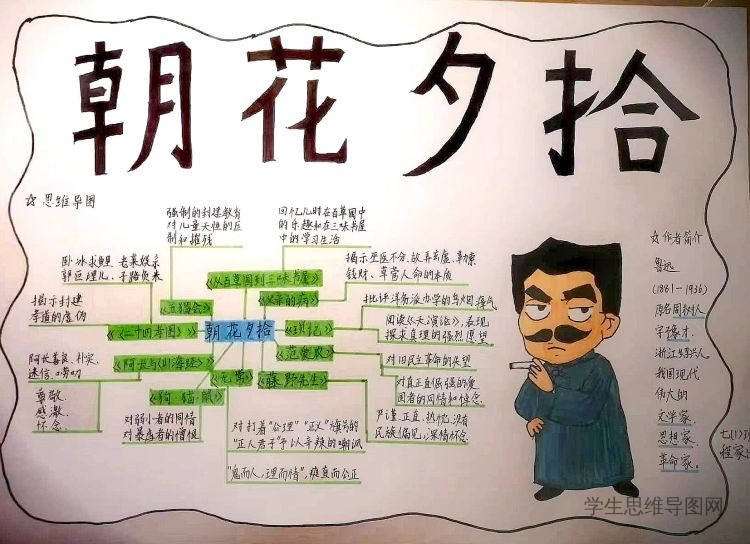 朝花夕拾
☆思维导图
强制的封建教育
对儿童天性的压
制和摧残
回忆儿时在百草园中
的乐趣和在三味书屋
中的学习生活
卧冰求鲤 老莱娱亲
郭巨埋儿、子路负米
揭示庸医不分、故弄玄虚、勒索
钱财、草菅人命的本质
《从百草园到三味书屋》
《五猖会》
《父亲的病》
揭示封建
孝道的虚伪
《二十四孝图》
朝花夕拾
《琐记》
批评洋务派办学的乌烟瘴气
阅读《天演论》,表现
探求真理的强烈愿望
《范爱农》
对旧民主革命的失望
对真正直倔强的爱
国者的同情和悼念
阿长善良、朴实、
迷信、唠叨
尊敬
感激
怀念
《阿长与《山海经》
《狗·猫·鼠》
《无常》
《藤野先生》
对弱小者的同情
对暴虐者的憎恨
对打着“公理”“正义”旗号的
“正人君子”予以辛辣的嘲讽
“鬼而人,理而情”,爽直而公正
严谨、正直、热忱、没有
民族偏见,深情怀念
☆作者简介
鲁迅
(1881-1936)
原名周树人
字豫才,
浙江绍兴人
我国现代
伟大的
文学家
思想家
革命家。
七(1)班
学生思维导图网